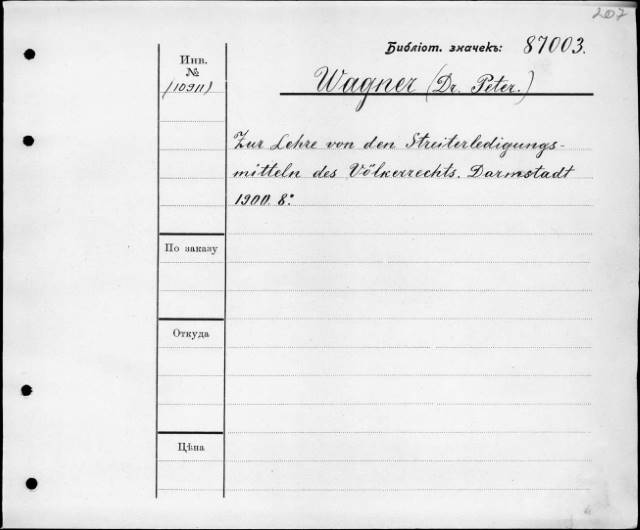 207
Библіот. значекъ: 87003.
Инв.
№
(10911)
Wagner (Dr. Peter.)
Zur Lehre von den Streiterledigungs-
mitteln des Völkerrechts. Darmstadt
1900. 8º.
По заказу
Откуда
Цѣна